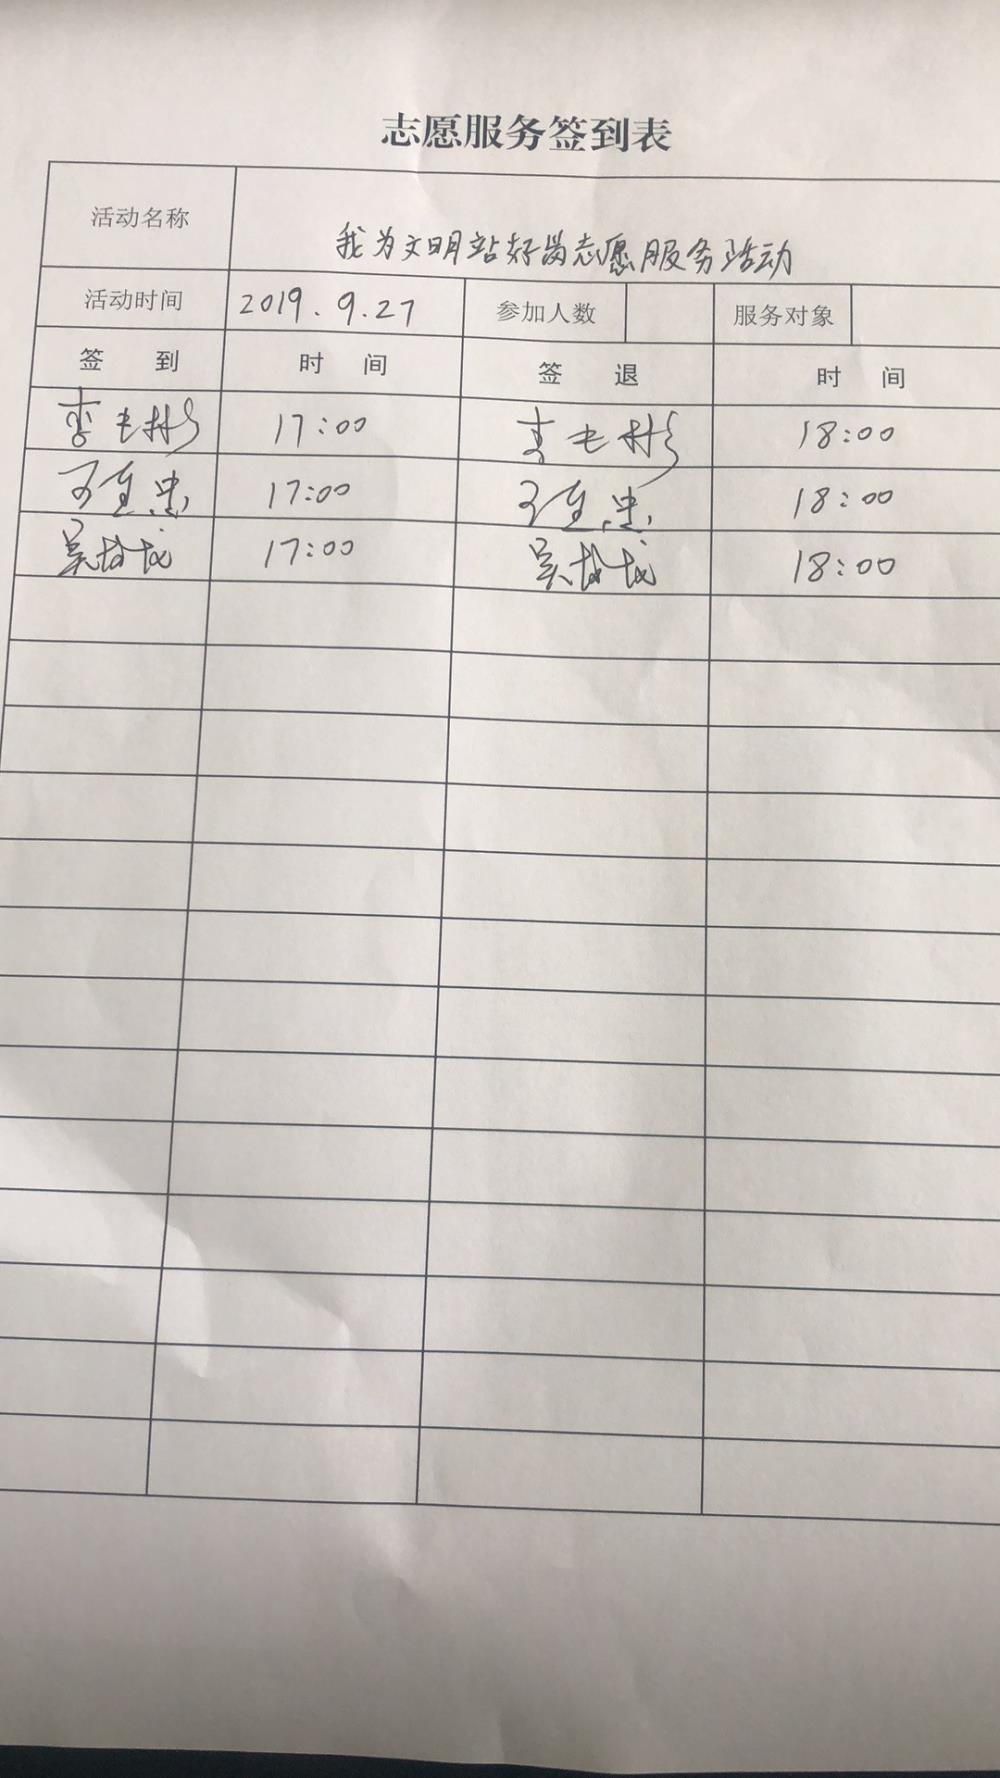 志愿服务签到表
活动名称 我为文明站好岗志愿服务活动
活动时间 2019.9.27 参加人数 服务对象
签到 时间 签退 时间
17:00 18:00
17:00 18:00
17:00 18:00